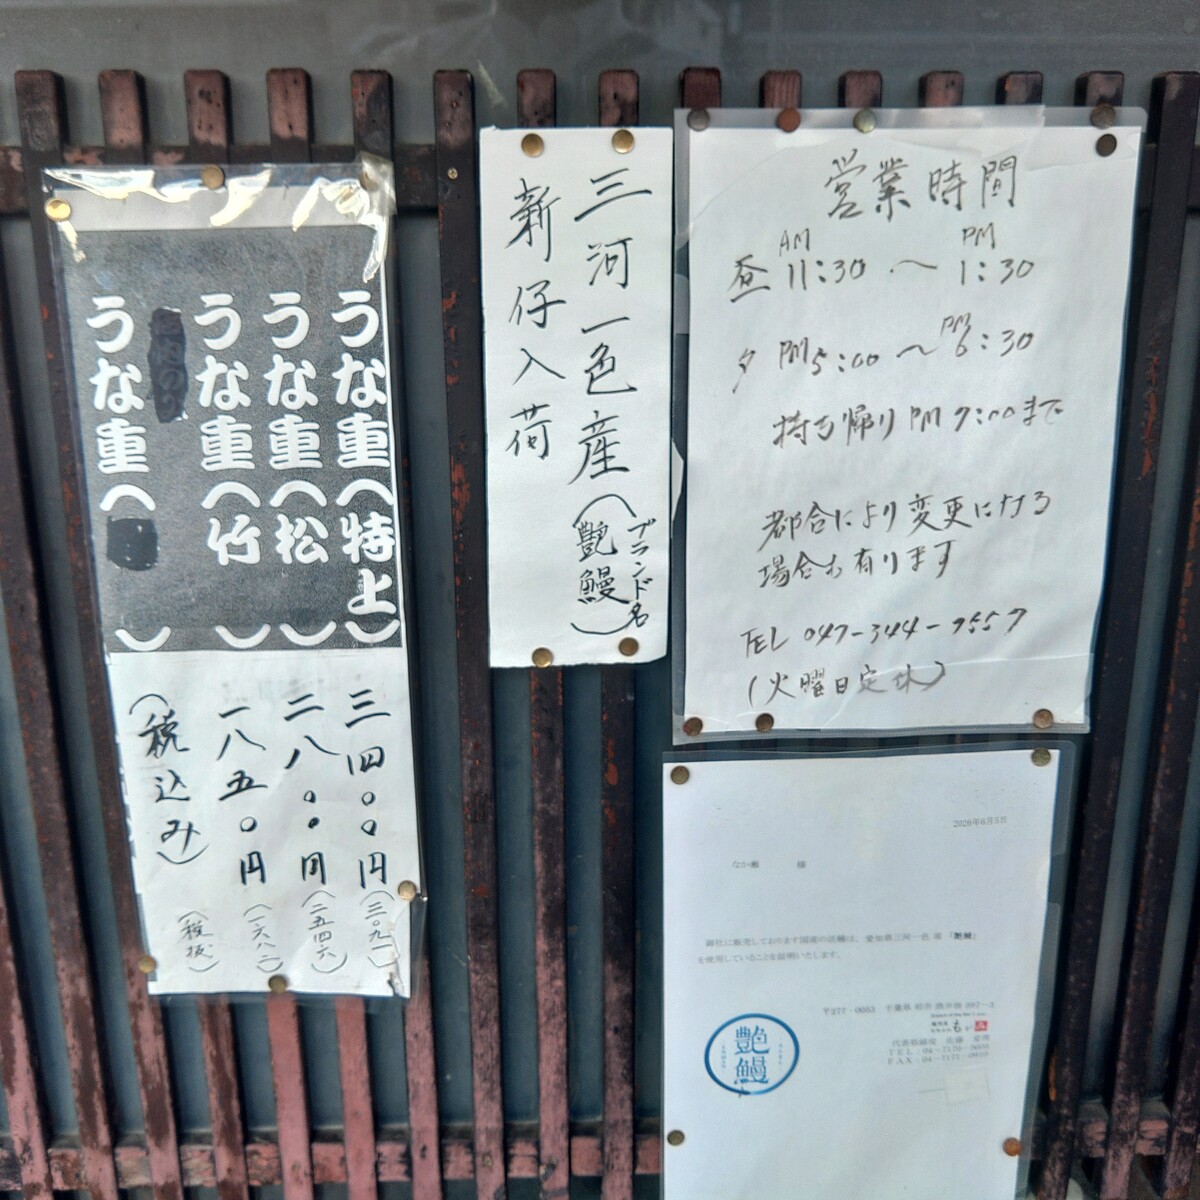 うな重(特上)
うな重(松)
うな重(竹)
うな重( )
三四〇〇円(三〇九一)
二八〇〇円(二五四六)
一八五〇円(一六八二)
(税込み)(税抜)
三河一色産(艶鰻)
ブランド名
新仔入荷
営業時間
昼 AM 11:30 〜 PM 1:30
夕 PM 5:00 〜 PM 6:30
持ち帰り PM 7:00まで
都合により変更になる
場合も有ります
TEL 047-344-9557
(火曜日定休)
2020年6月5日
なか瀬 様
御社に販売しております国産の活鰻は、愛知県三河一色 産 「艶鰻」
を使用していることを証明いたします。
〒277-0053 千葉県 柏市 酒井根
代表取締役 佐藤
TEL:04-7170-
FAX:04-7171-
艶鰻